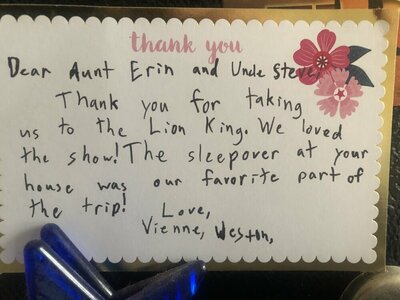 thank you
Dear Aunt Erin and Uncle Steve,
Thank you for taking
us to the Lion King. We loved
the show! The sleepover at your
house was our favorite part of
the trip!
Love,
Vienne, Weston,